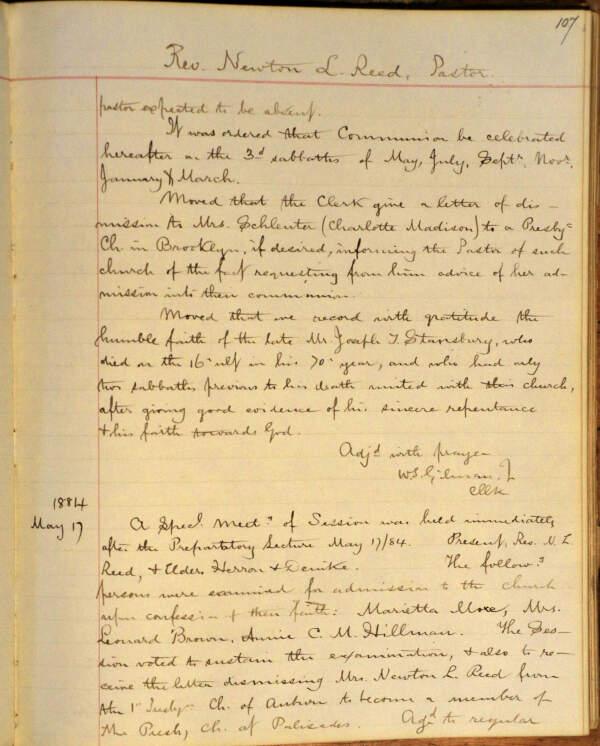 107
Rev. Newton L. Reed, Pastor.
pastor expected to be absent.
It was ordered that Communion be celebrated
hereafter on the 3d sabbaths of May, July, Septr, Novr,
January & March.
Moved that the Clerk give a letter of dis-
mission to Mrs. Schlenter (Charlotte Madison) to a Presby-
Ch. in Brooklyn, if desired, informing the Pastor of such
church of the fact requesting from him advice of her ad-
mission into their communion.
Moved that we record with gratitude the
humble faith of the late Mr. Joseph T. Stansbury, who
died on the 16 ult in his 70 year, and who had only
two sabbaths previous to his death united with this church,
after giving good evidence of his sincere repentance
& his faith towards God.
Adjd with prayer
W.S. Gilman Jr
Clk
1884
May 17
A Specl Meetg of Session was held immediately
after the Prepartatory Lecture May 17/84. Present, Rev. N. L.
Reed, & Elders Herron & Denike. The followg
persons were examined for admission to the church
upon confession of their faith: Marietta Moxe, Mrs.
Leonard Brown, Annie C. M. Hillman. The Ses-
sion voted to sustain the examination, & also to re-
ceive the letter dismissing Mrs. Newton L. Reed from
the 1st Presby- Ch. of Auburn to become a member of
the Presby Ch. of Palisades. Adjd to regular